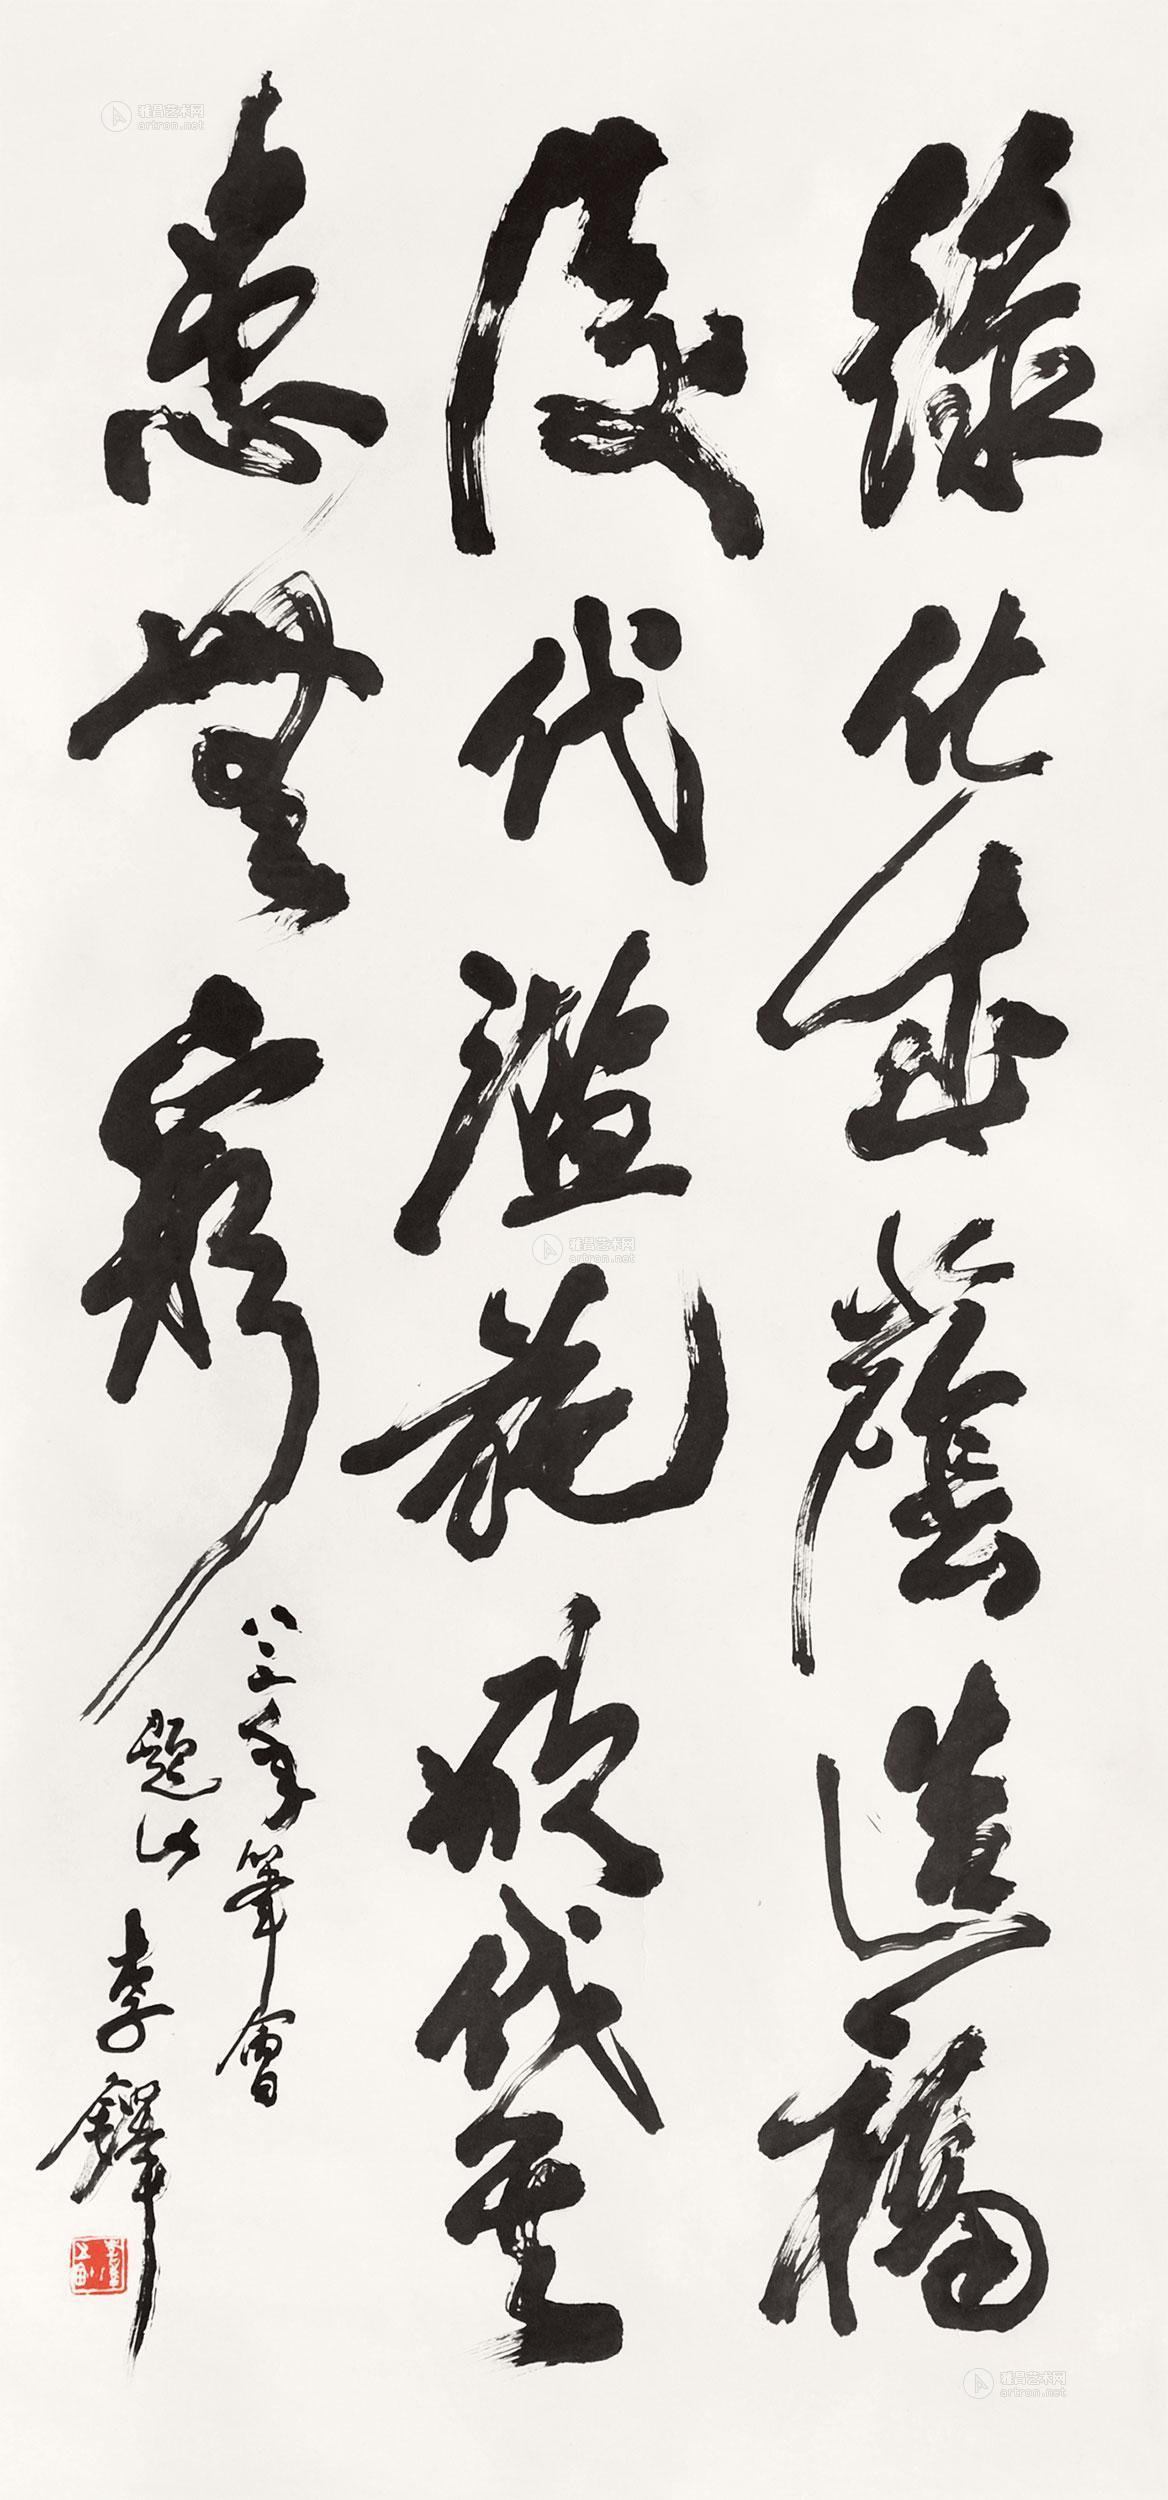 綠化垂蔭造橋
後代濫施砍伐生
患無窮
八三年筆會
題此
李鐸
雅昌艺术网
artron.net
雅昌艺术网
artron.net
雅昌艺术网
artron.net